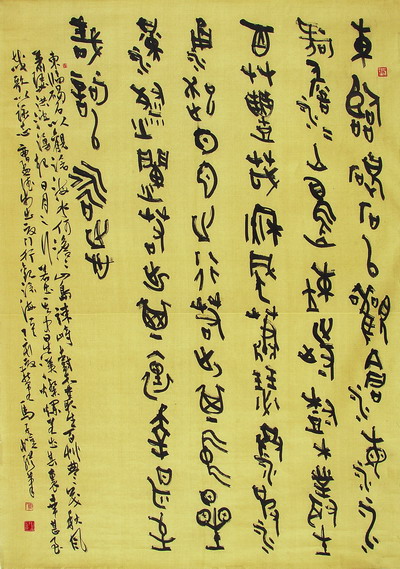 東臨碣石以觀滄海水
何澹澹山島竦峙樹木叢生
百草豐茂秋風蕭瑟洪波
湧起日月之行若出其中星
漢燦爛若出其裏幸甚至
哉歌以詠志
東臨碣石以觀滄海水何澹澹山島竦峙樹木叢生百草豐茂秋風
蕭瑟洪波湧起日月之行若出其中星漢燦爛若出其裏幸甚至
哉歌以詠志 曹孟德步出夏門行觀滄海詩